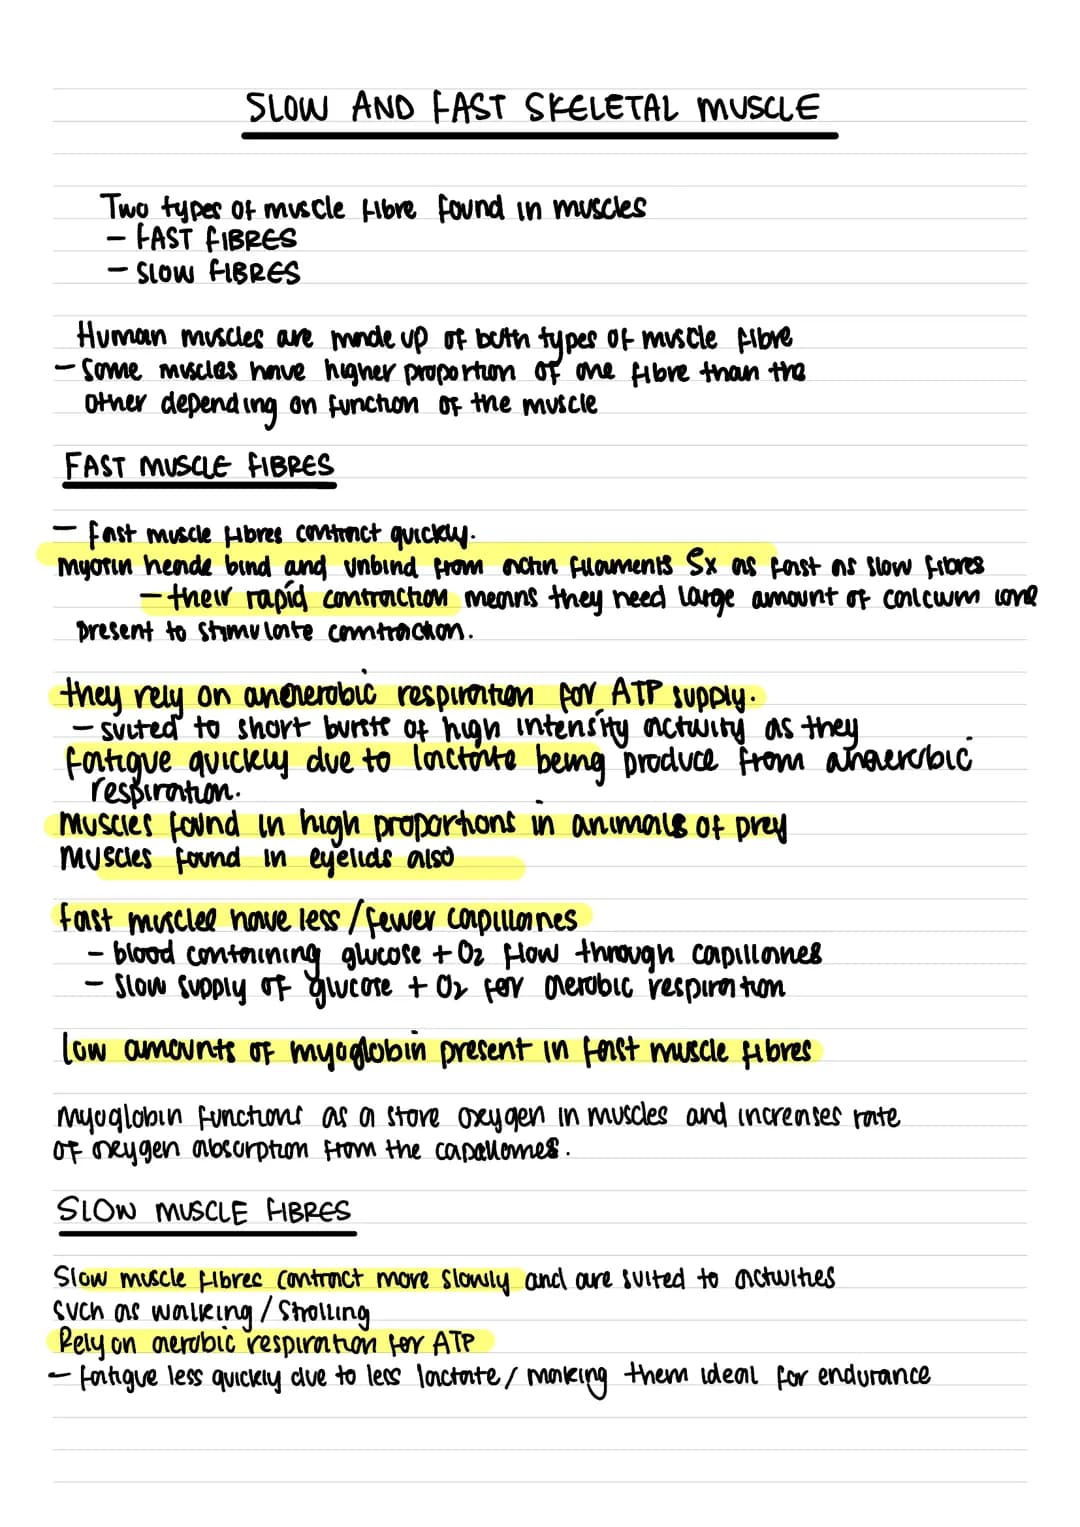 SLOW AND FAST SKELETAL MUSCLE
Two types of muscle fibre found in muscles
- FAST FIBRES
- SLOW FIBRES
Human muscles are made up of both types of muscle fibre
- Some muscles have higher proportion of one fibre than the
other depending on function of the muscle
FAST MUSCLE FIBRES
- fast muscle fibres contract quickly.
myosin heads bind and unbind from actin filaments 5x as fast as slow fibres
- their rapid contraction means they need large amount of calcium ions
present to stimulate contraction.
they rely on anaerobic respiration for ATP supply.
- suited to short bursts of high intensity activity as they
fatigue quickly due to lactate being produce from anaerobic
respiration.
Muscles found in high proportions in animals of prey
Muscles found in eyelids also
fast muscles have less / fewer capillaries
- blood containing glucose + O2 flow through capillaries
- Slow supply of glucose + O2 for aerobic respiration
low amounts of myoglobin present in fast muscle fibres
myoglobin functions as a store oxygen in muscles and increases rate
of oxygen absorption from the capallaries.
SLOW MUSCLE FIBRES
Slow muscle fibres contract more slowly and are suited to activities
such as walking / strolling
Rely on aerobic respiration for ATP
- fatigue less quickly due to less lactate / making them ideal for endurance